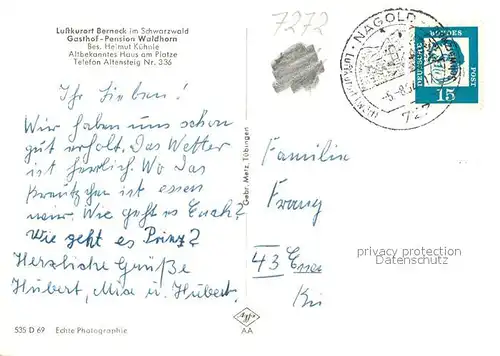 Luftkurort Berneck im Schwarzwald
Gasthof-Pension Waldhorn
Bes. Helmut Kühnle
Altbekanntes Haus am Platze
Telefon Altensteig Nr. 336
7272
NAGOLD
DEUTSCHE BUNDESPOST
15
Ihr Lieben!
Wir haben uns schon
gut erholt. Das Wetter
ist herrlich. Wo das
Kreuzchen ist essen
wir. Wie geht es Euch?
Wie geht es Prinz?
Herzliche Grüße
Hubert, Mia u. Hubert.
Gebr. Metz, Tübingen
Familie
Franz
43 Essen
privacy protection
535 D 69 Echte Photographie
Agfa
AA